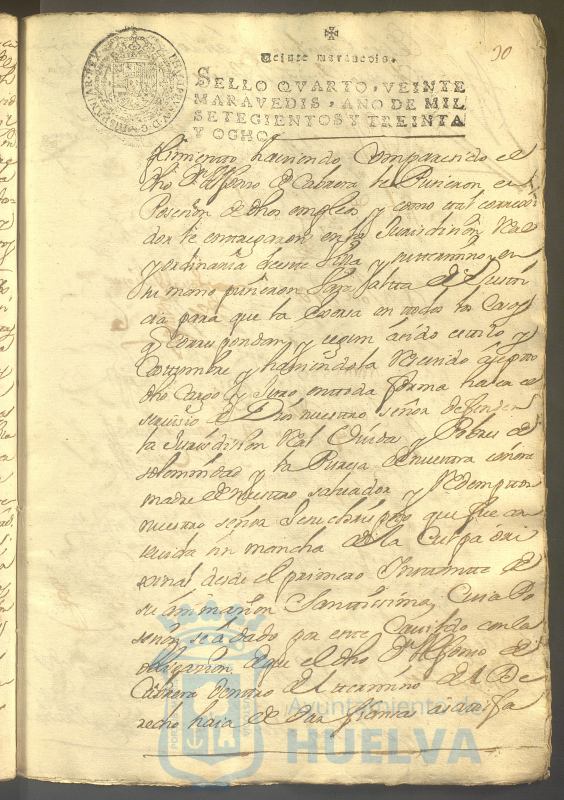 30
Veinte maravedis.
SELLO QVARTO, VEINTE
MARAVEDIS, AÑO DE MIL
SETECIENTOS Y TREINTA
Y OCHO.
haviendo Comparecido el
dho Dn Alfonso de Cabrera le Pusieron en
Posesion de dhos empleos y como tal corregi
dor le entregaron en la Jurisdision Real
y ordinaria de este Villa y en
su mano pusieron Vara alta de Justi
cia para que la exersa en todos los Casos
q Correspondan y segun á sido estilo y
Costumbre y haviendola Resevido
dho Cargo y Juro en toda forma haser el
servisio de Dios nuestro señor defender
la Jurisdision Real Viudas y Pobres de
solemnidad y la Puresa de nuestra señora
madre de nuestro salvador y Redemptor
nuestro señor Jesuchristo que fue con
sevida sin mancha de la Culpa ori
ginal desde el primero Instante de
su animasion Santissima, Cuia Po
sesion se á dado por este Cavildo con la
obligasion de que el dho Dn Alfonso de
Cabrera dentro del termino del De
recho haia de Dar fianza
Ayuntamiento de
HUELVA